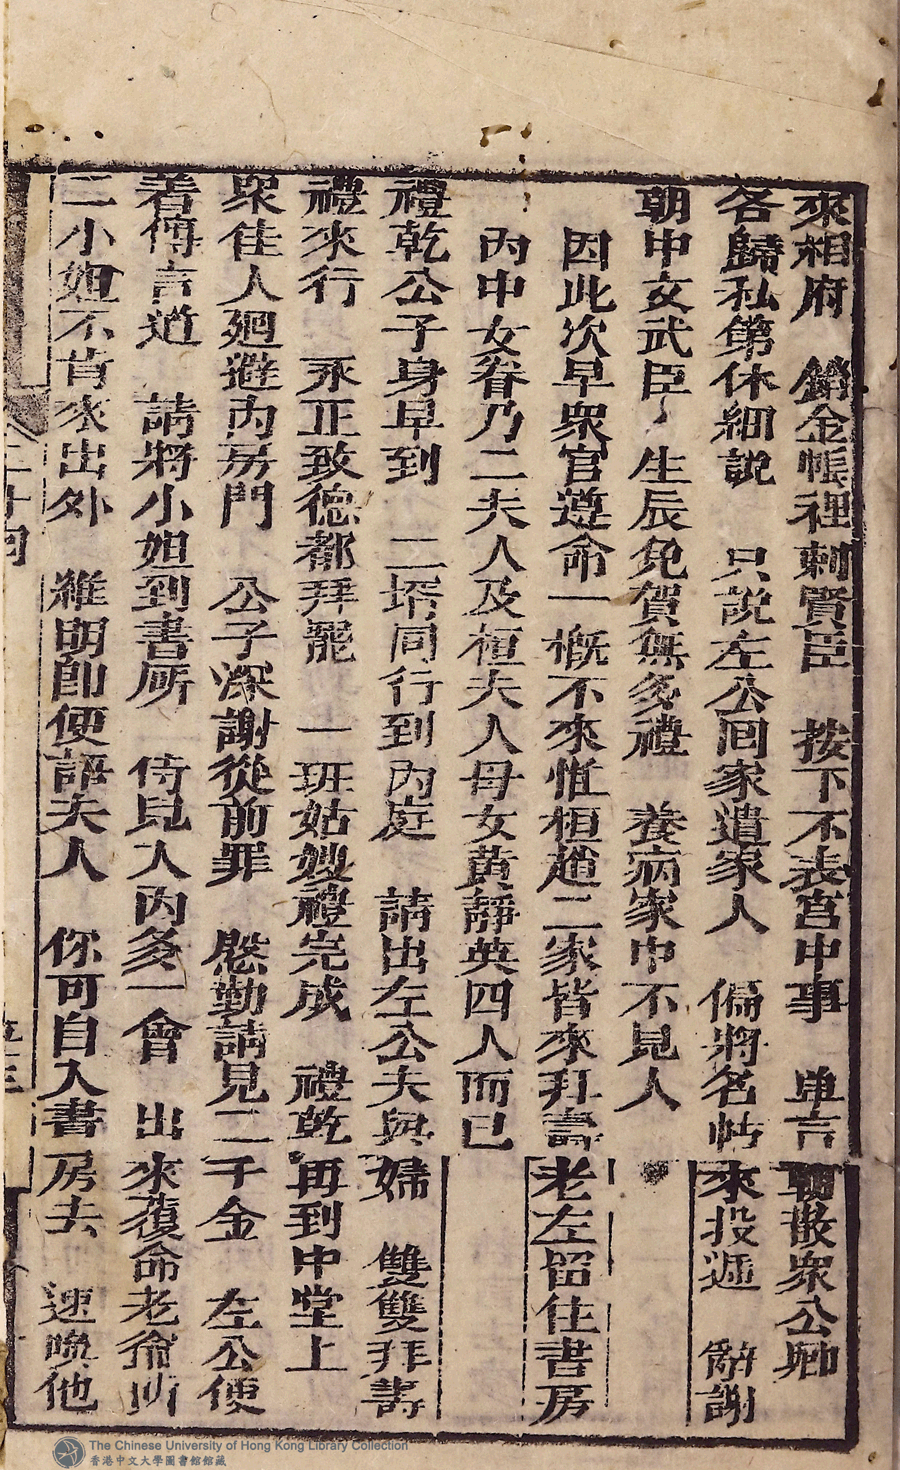 來相府　銷金帳裡刺賢臣　按下不表宮中事　单言朝散衆公卿
各歸私第休細説　只説左公回家遣家人　偏將名帖來投遞　辭謝
朝中文武臣　生辰免賀無多禮　養病家中不見人
因此次早衆官遵命一概不來惟桓趙二家皆來拜壽老左留住書房
内中女眷乃二夫人及桓夫人母女黄靜英四人而已
禮乾公子身早到　二壻同行到内庭　請出左公夫與婦　雙雙拜壽
禮來行　永正致德都拜罷　一班姑嫂禮完成　禮乾再到中堂上
衆佳人廻避内房門　公子深謝從前罪　慇勤請見二千金　左公便
着傳言道　請將小姐到書廂　侍兒入内多一會　出來覆命老爺所
二小姐不肯來出外　維明即便語夫人　你可自入書房去　速喚他
二十回
The Chinese University of Hong Kong Library Collection
香港中文大學圖書館館藏